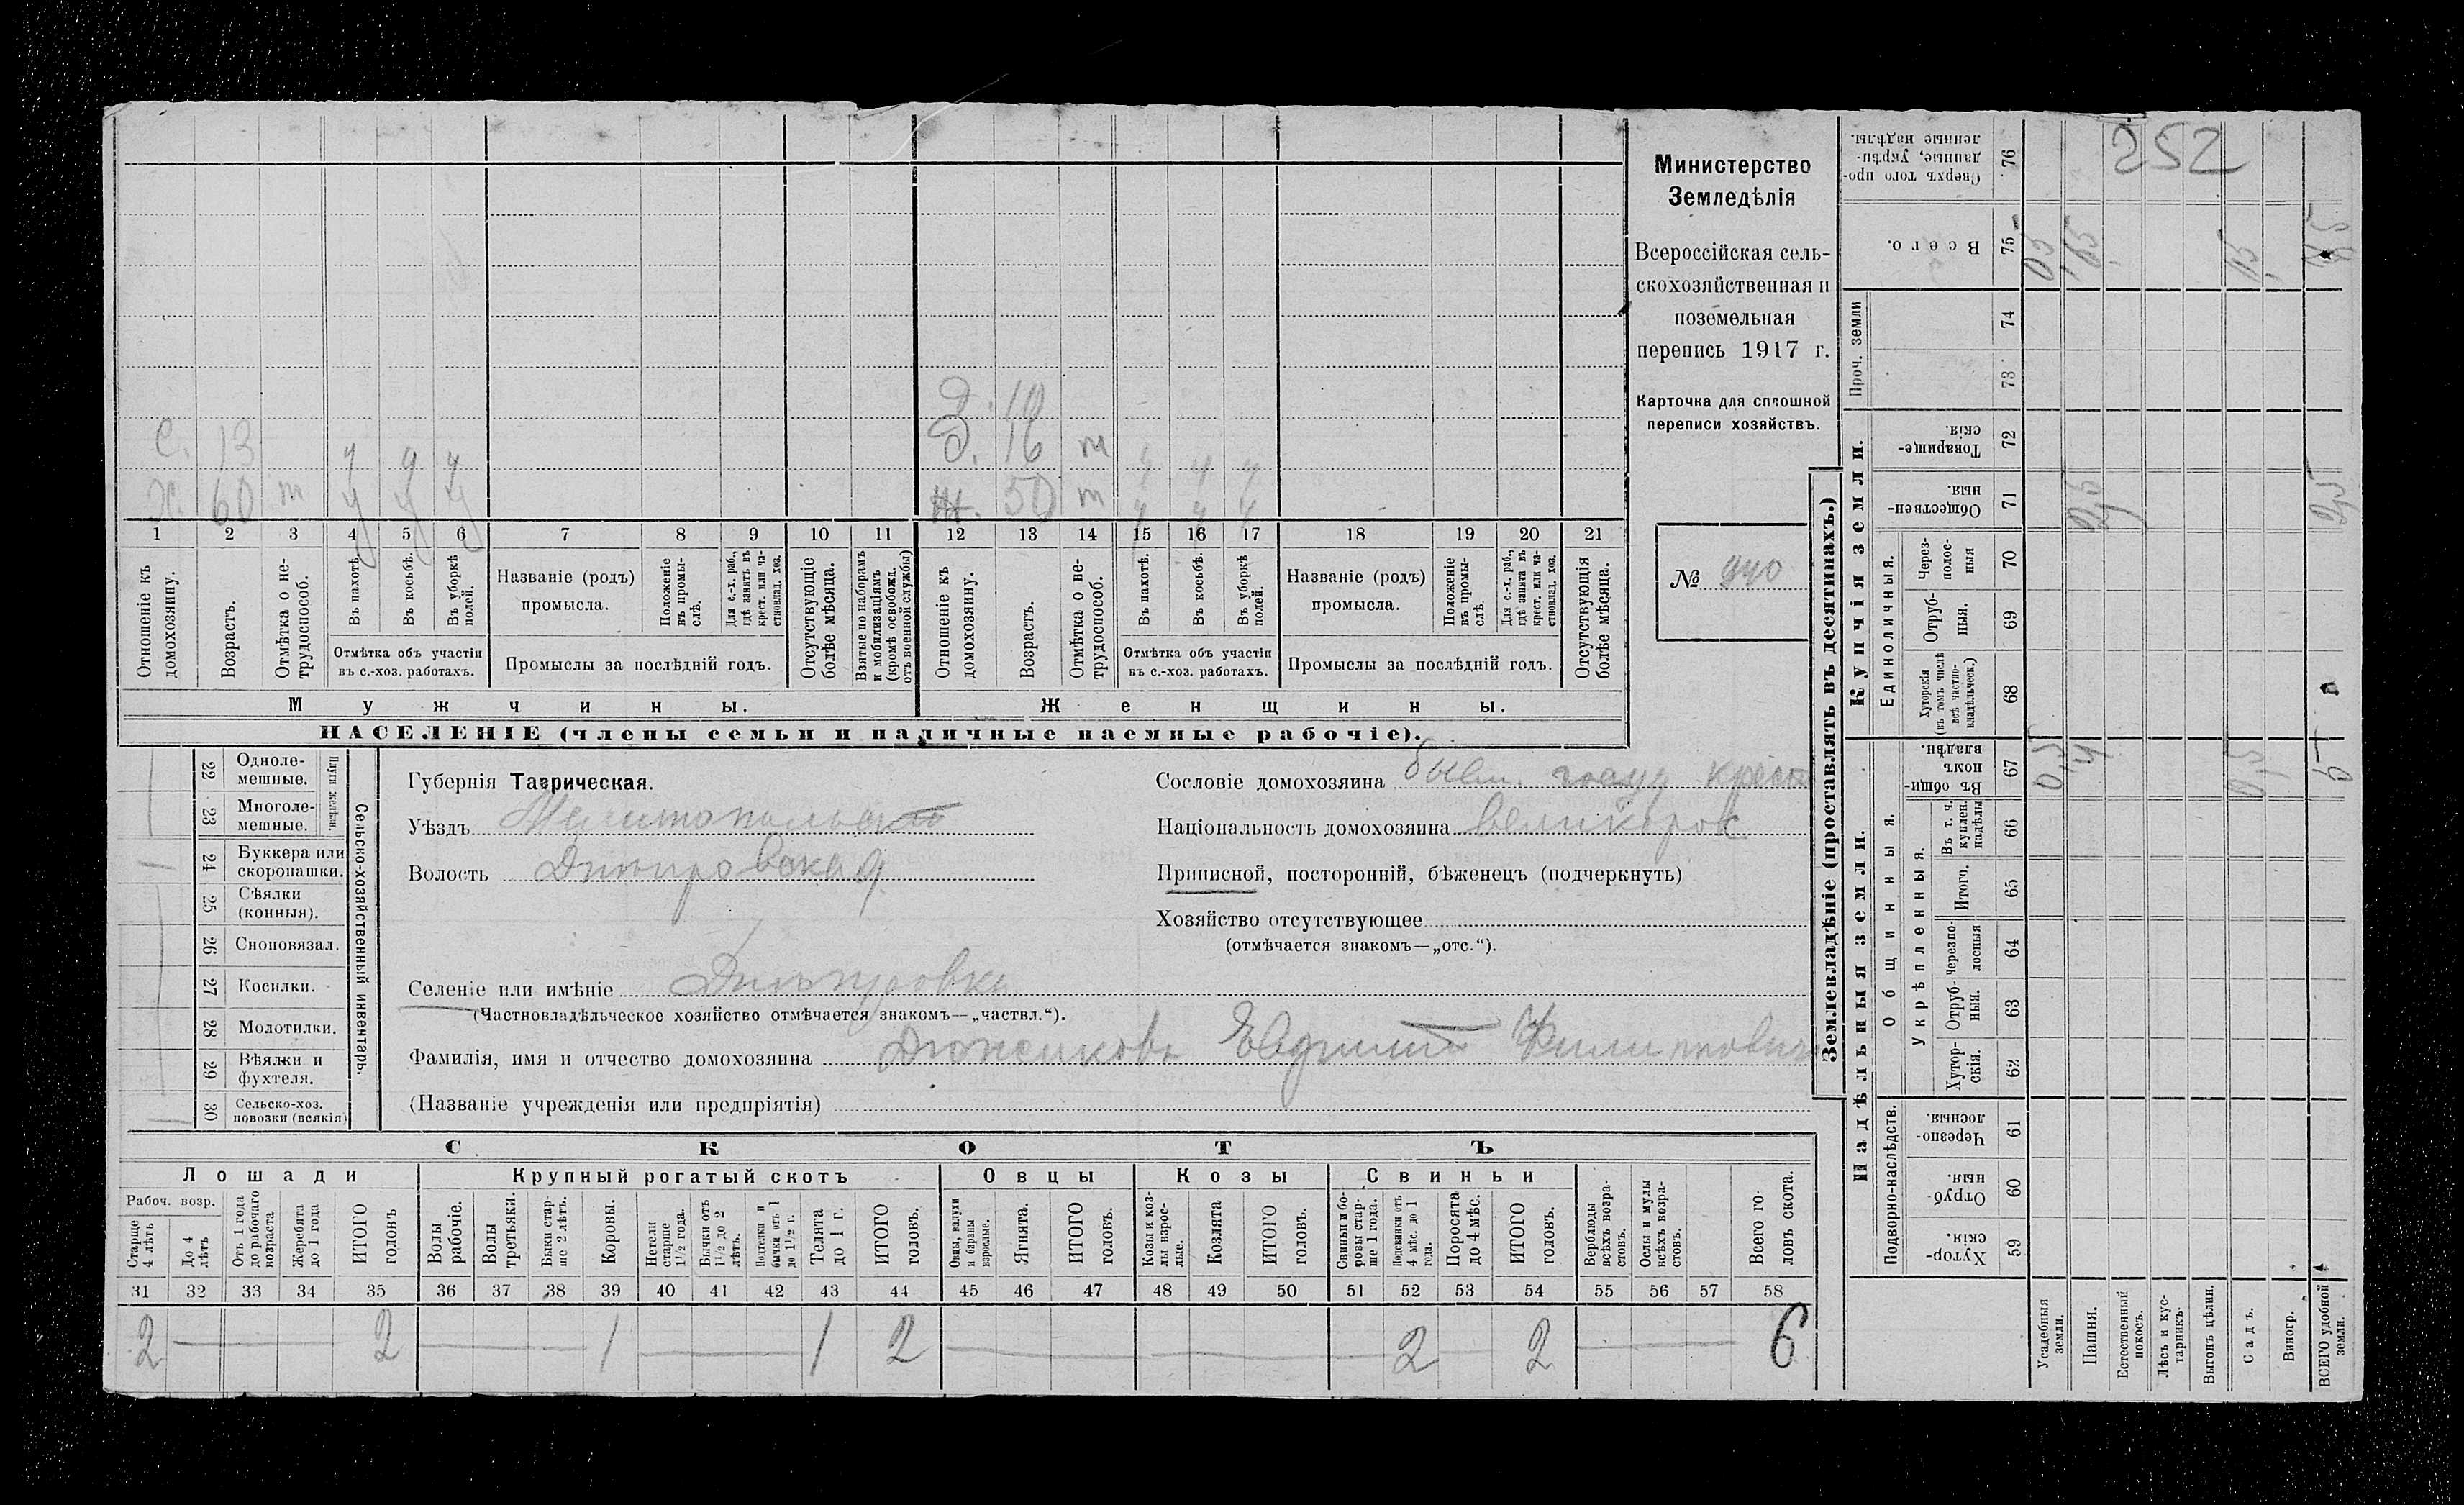 252
Министерство
Земледѣлія
Всероссійская сель-
скохозяйственная и
поземельная
перепись 1917 г.
Карточка для сплошной
переписи хозяйствъ.
№ 940
д. 10
с. 13 ч ч ч
д. 16 т ч ч ч
х. 60 т ч ч ч
ж. 50 т ч ч ч
1 2 3 4 5 6 7 8 9 10 11 12 13 14 15 16 17 18 19 20 21
Отношеніе къ домохозяину.
Возрастъ.
Отмѣтка о не-трудоспособ.
Въ пахотѣ.
Въ косьбѣ.
Въ уборкѣ полей.
Отмѣтка объ участіи
въ с.-хоз. работахъ.
Названіе (родъ)
промысла.
Положеніе въ промы-слѣ.
Для с.-х. раб., гдѣ занятъ въ крест. или ча-стновлад. хоз.
Промыслы за послѣдній годъ.
Отсутствующіе болѣе мѣсяца.
Взятые по наборамъ и мобилизаціямъ (кромѣ освобожд. отъ военной службы)
Отношеніе къ домохозяину.
Возрастъ.
Отмѣтка о не-трудоспособ.
Въ пахотѣ.
Въ косьбѣ.
Въ уборкѣ полей.
Отмѣтка объ участіи
въ с.-хоз. работахъ.
Названіе (родъ)
промысла.
Положеніе въ промы-слѣ.
Для с.-х. раб., гдѣ занята въ крест. или ча-стновлад. хоз.
Промыслы за послѣдній годъ.
Отсутствующія болѣе мѣсяца.
Мужчины.
Женщины.
НАСЕЛЕНІЕ (члены семьи и наличные наемные рабочіе).
Сельско-хозяйственный инвентарь.
Плуги желѣзн.
22 Одноле-мешные.
23 Многоле-мешные.
24 Буккера или скоропашки.
25 Сѣялки (конныя).
26 Сноповязал.
27 Косилки.
28 Молотилки.
29 Вѣялки и фухтеля.
30 Сельско-хоз. повозки (всякія)
Губернія Таврическая.
Уѣздъ Мелитопольскій
Волость Днѣпровская
Селеніе или имѣніе Днѣпровка
(Частновладѣльческое хозяйство отмѣчается знакомъ—„частвл.“).
Сословіе домохозяина бывш. госуд. крест
Національность домохозяина великорос
Приписной, посторонній, бѣженецъ (подчеркнуть)
Хозяйство отсутствующее
(отмѣчается знакомъ—„отс.“).
Фамилія, имя и отчество домохозяина Дюжиковъ Евдоким Филиппович
(Названіе учрежденія или предпріятія)
СКОТЪ
Лошади
Крупный рогатый скотъ
Овцы
Козы
Свиньи
Рабоч. возр.
Старше 4 лѣтъ
До 4 лѣтъ
Отъ 1 года до рабочаго возраста
Жеребята до 1 года
ИТОГО головъ
Волы рабочіе.
Волы третьяки.
Быки стар-ше 2 лѣтъ.
Коровы.
Нетели старше 1½ года.
Бычки отъ 1½ до 2 лѣтъ.
Подтелки и бычки отъ 1 до 1½ г.
Телята до 1 г.
ИТОГО головъ.
Овцы, валухи и бараны взрослые.
Ягнята.
ИТОГО головъ.
Козы и коз-лы взрос-лые.
Козлята
ИТОГО головъ.
Свиньи и бо-ровы стар-ше 1 года.
Подсвинки отъ 4 мѣс. до 1 года.
Поросята до 4 мѣс.
ИТОГО головъ.
Верблюды всѣхъ возра-стовъ.
Ослы и мулы всѣхъ возра-стовъ.
Всего го-ловъ скота.
31 32 33 34 35 36 37 38 39 40 41 42 43 44 45 46 47 48 49 50 51 52 53 54 55 56 57 58
2 — 2 — 1 — 1 2 — 2 — 2 — 6
Землевладѣніе (проставлять въ десятинахъ.)
Надѣльныя земли.
Купчія земли.
Проч. земли
Сверхъ того про-данные, укрѣп-ленные надѣлы. 76
Всего. 75
74
73
Товарище-скія. 72
Обществен-ныя. 71
Единоличныя.
Через-полос-ныя 70
Отруб-ныя. 69
Хуторскія (въ томъ числѣ всѣ частно-владѣльческ.) 68
Общинныя.
Въ общин-номъ владѣн. 67
Укрѣпленныя.
Въ т. ч. куплен. надѣлы 66
Итого. 65
Черезпо-лосныя 64
Отруб-ныя. 63
Хутор-скія. 62
Подворно-наслѣдств.
Черезпо-лосныя. 61
Отруб-ныя. 60
Хутор-скія. 59
Усадебныя земли.
Пашня.
Естественный покосъ.
Лѣсъ и кус-тарникъ.
Выгонъ цѣлин.
Садъ.
Виногр.
ВСЕГО удобной земли.
0,5
4
0,5
5
2,5
2,5